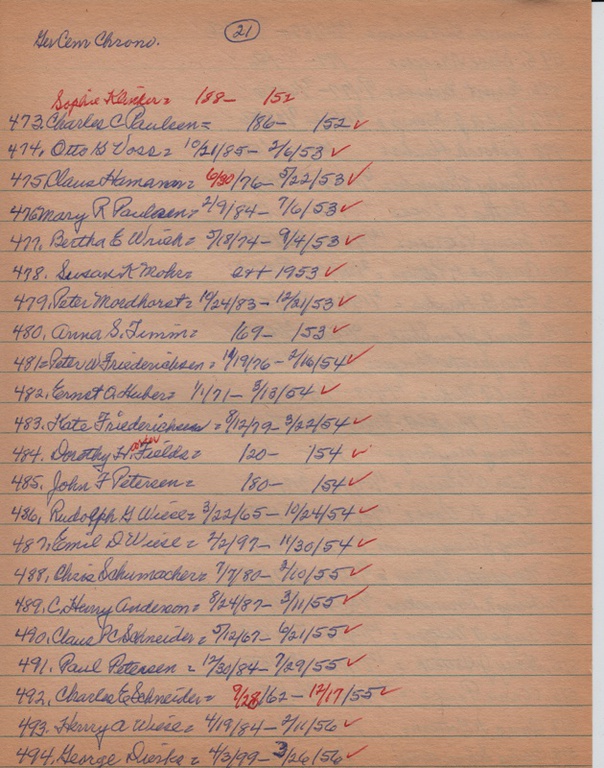 Ger Cem Chrono. 21
Sophie Klinker = 188- 152
473. Charles C Paulsen = 186- 152 ✓
474. Otto G Voss = 10/21/85 - 2/6/53 ✓
475. Claus Hamann = 6/30/76 - 5/22/53 ✓
476 Mary R Paulsen = 2/9/84 - 7/6/53 ✓
477. Bertha E Wriek = 5/18/74 - 9/4/53 ✓
478. Susan K Mohr = 1953 ✓
479. Peter Mordhorst = 10/24/83 - 12/21/53 ✓
480. Anna S. Timm = 169- 153 ✓
481 = Peter W Friederichsen = /19/76 - 2/16/54 ✓
482. Ernst O Huber = 1/1/71 - 3/13/54 ✓
483. Kate Friederichsen = 8/12/79 - 3/22/54 ✓
484. Dorothy H. Fields = 120- 154 ✓
485. John F Petersen = 180- 154 ✓
486. Rudolph G Wiese = 3/22/65 - 10/24/54 ✓
487. Emil D Wiese = 2/2/97 - 11/30/54 ✓
488. Chris Schumacher = 7/7/80 - 2/10/55 ✓
489. C. Henry Anderson = 8/24/87 - 3/11/55 ✓
490. Claus P C Schneider = 5/12/67 - 6/21/55 ✓
491. Paul Petersen = 12/30/84 - 7/29/55 ✓
492. Charles E Schneider = 9/28/62 - 12/17/55 ✓
493. Henry A Wiese = 4/19/84 - 2/11/56 ✓
494. George Dierks = 4/3/99 - 3/26/56 ✓